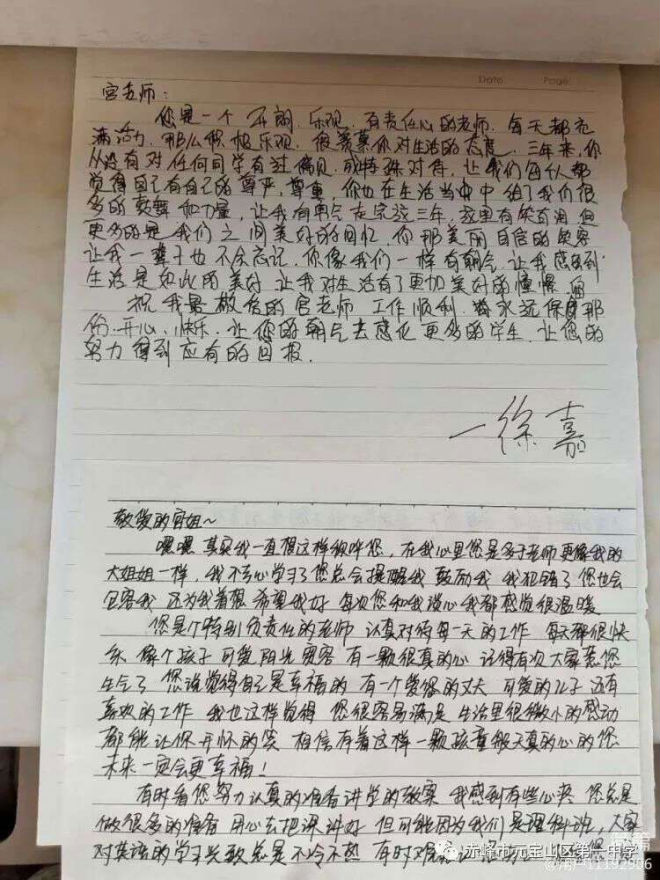 Date    Page
宫老师：
您是一个开朗、乐观、有责任心的老师。每天都充
满活力，那么积极乐观。很羡慕你对生活的态度。三年来，你
从没有对任何同学有过偏见，或特殊对待，让我们每个人都
觉得自己有自己的尊严，尊重。你也在生活当中中给了我们很
多的鼓舞和力量，让我有勇气在完这三年，这里有欢有泪但
更多的是我们之间美好的回忆，你那美丽自信的笑容
让我一辈子也不会忘记，你像我们一样有朝气，让我感到
生活是如此的美好，让我对生活有了更加美好的憧憬
祝我最敬爱的宫老师工作顺利，永远保那
份开心、快乐，让您的朝气去感化更多的学生，让您的
努力得到应有的回报。
—徐嘉
敬爱的宫姐～
嘿嘿 其实我一直想这样称呼您，在我心里您是多于老师更像我的
大姐姐一样，我不专心学习了您总会提醒我 鼓励我 我犯错了您也会
包容我 还为我着想 希望我好 每次您和我谈心我都感觉很温暖
您是个特别负责任的老师 认真对待每一天的工作 每天都很快
乐 像个孩子 可爱阳光宽容 有一颗很真的心 记得有次大家惹您
生气了 您说觉得自己是幸福的 有一个爱您的丈夫 可爱的儿子 还有
喜欢的工作 我也这样觉得 您很容易满足 生活里很微小的感动
都能让你开怀的笑 相信有着这样一颗孩童般天真的心的您
未来一定会更幸福！
有时看您努力认真的准备讲堂的教案 我感到有些心疼 您总是
做很多的准备 用心去把课讲好 但可能因为我们是理科班，大家
对英语的学习兴致总是不冷不热 有时
赤峰市元宝山区第一中学
11192906